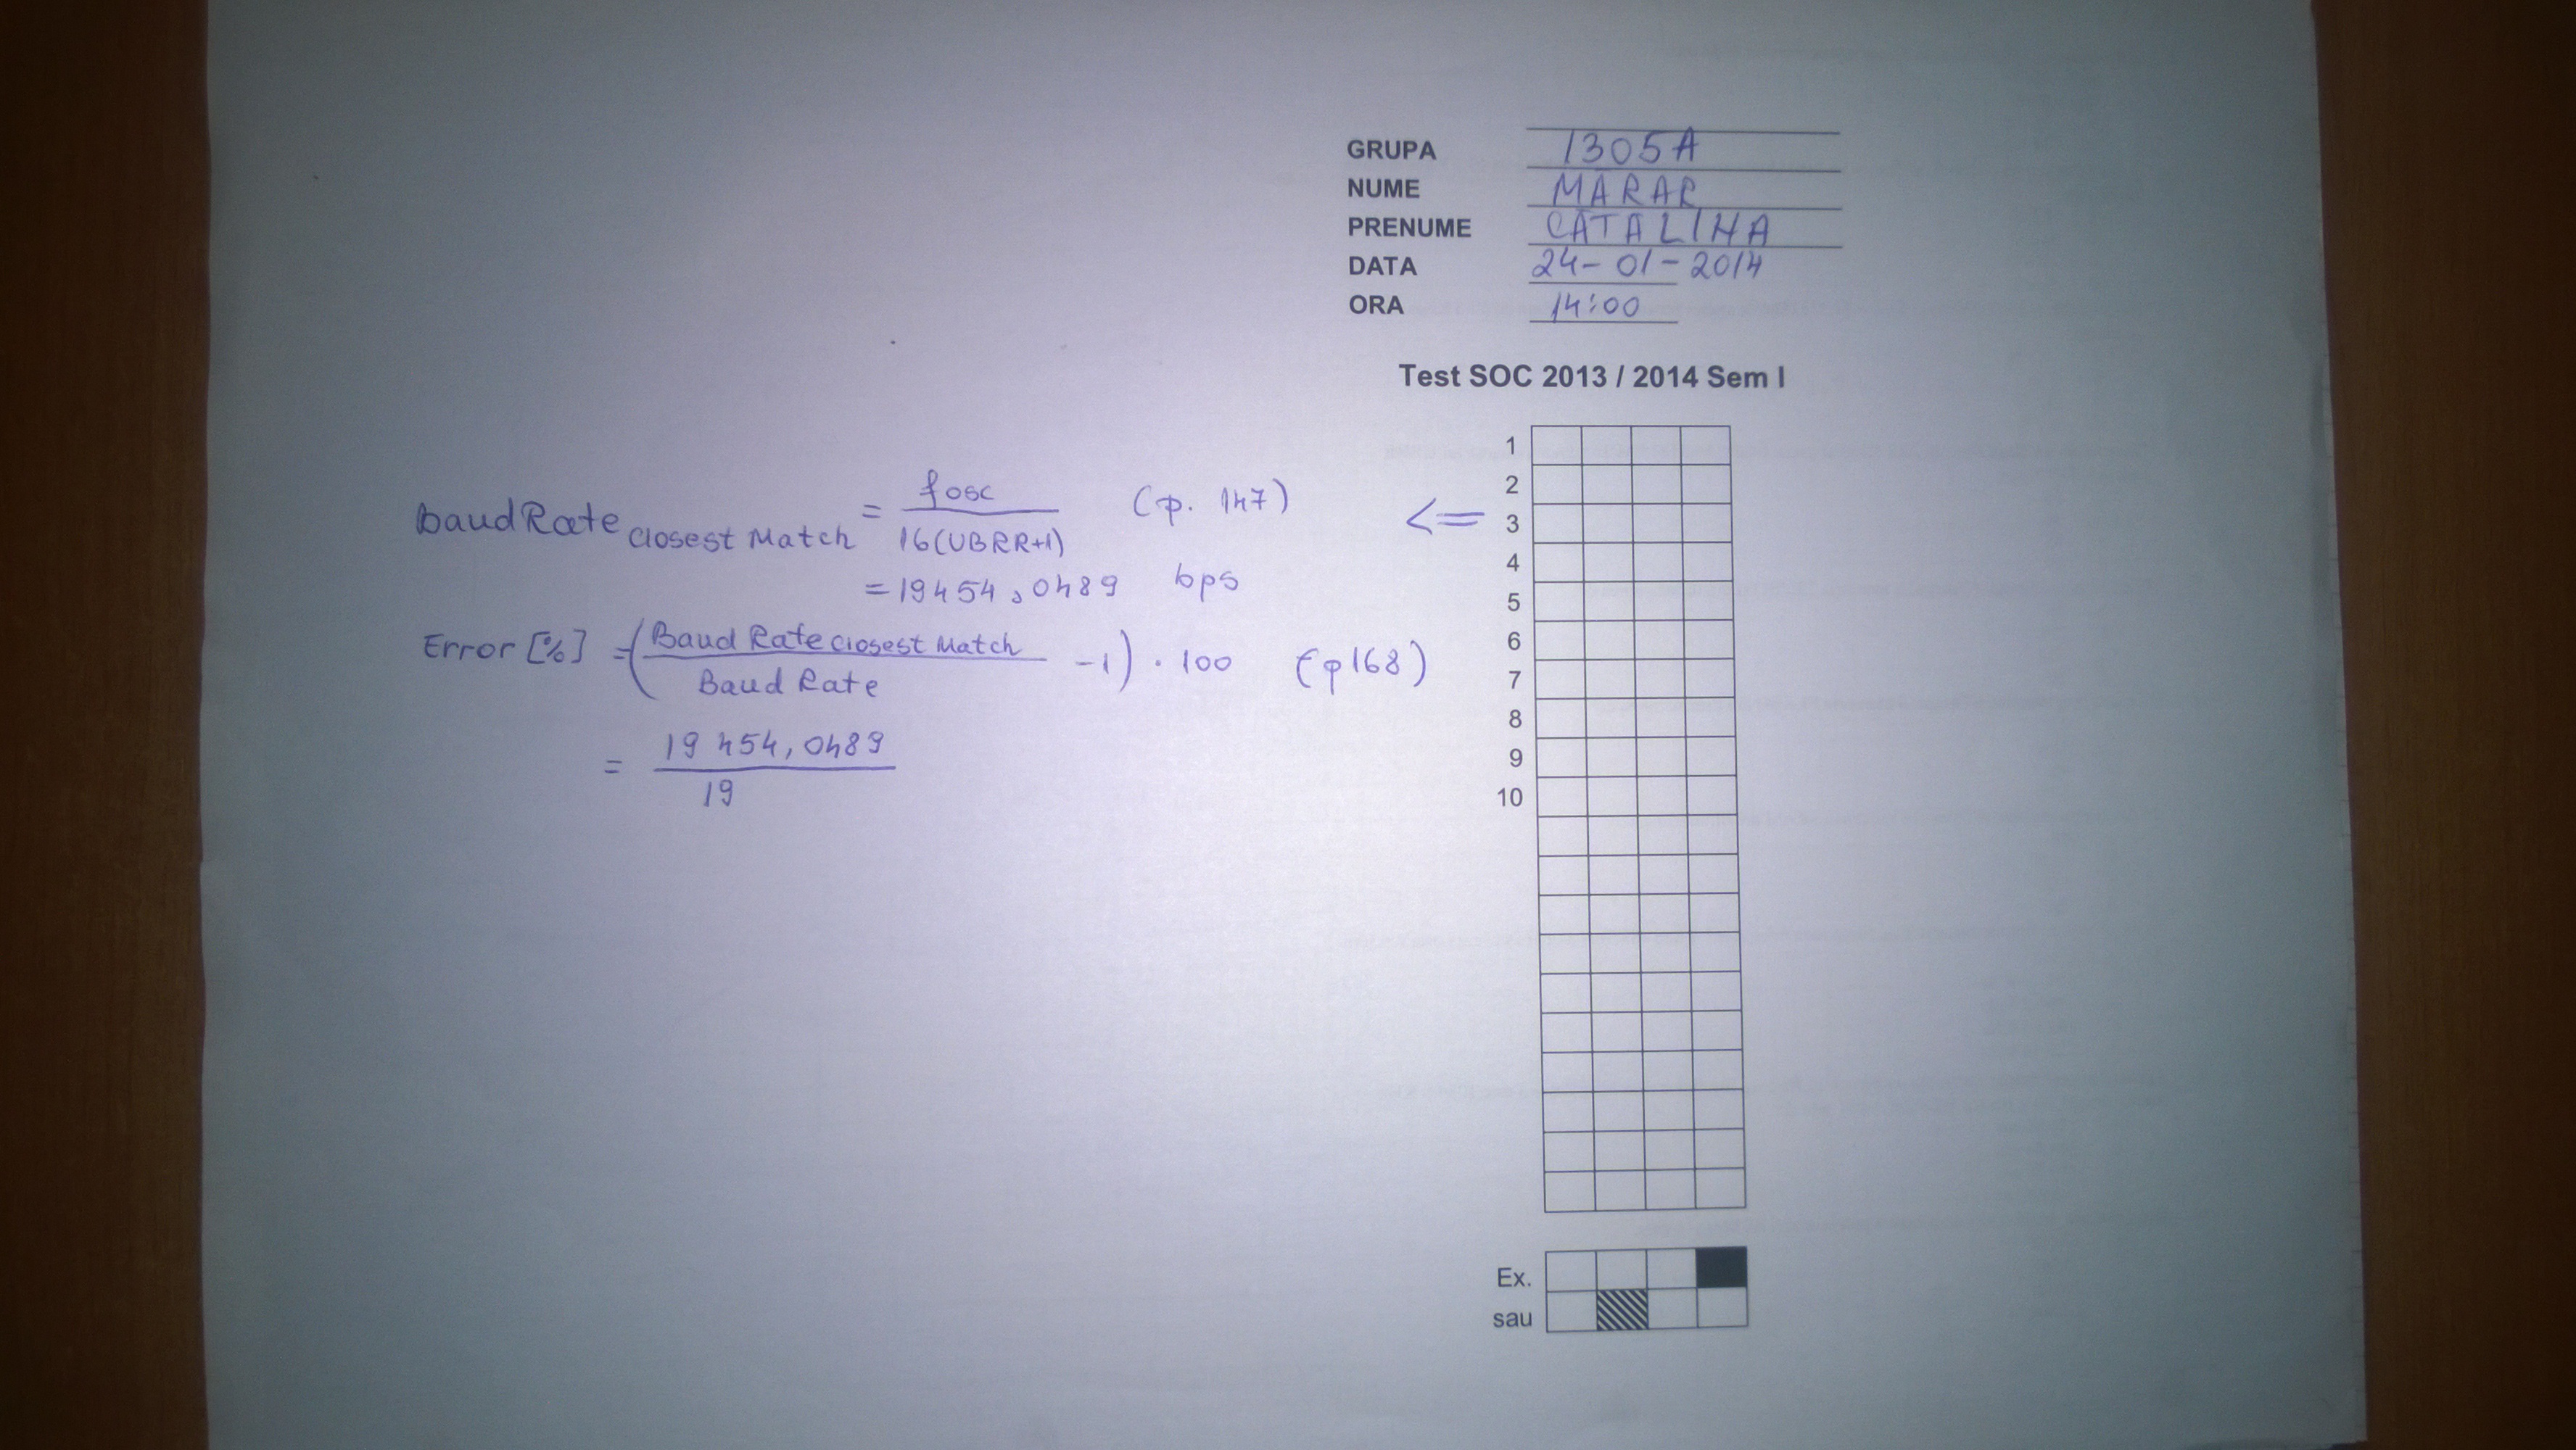 GRUPA 1305A
NUME MARAR
PRENUME CATALINA
DATA 24-01-2014
ORA 14:00
Test SOC 2013 / 2014 Sem I
BaudRate Closest Match = fosc / 16(UBRR+1) (p. 147) <= 
= 19454,0489 bps
Error [%] = (Baud Rate Closest Match / Baud Rate -1) · 100 (p168)
= 19 454,0489 / 19
1
2
3
4
5
6
7
8
9
10
Ex.
sau